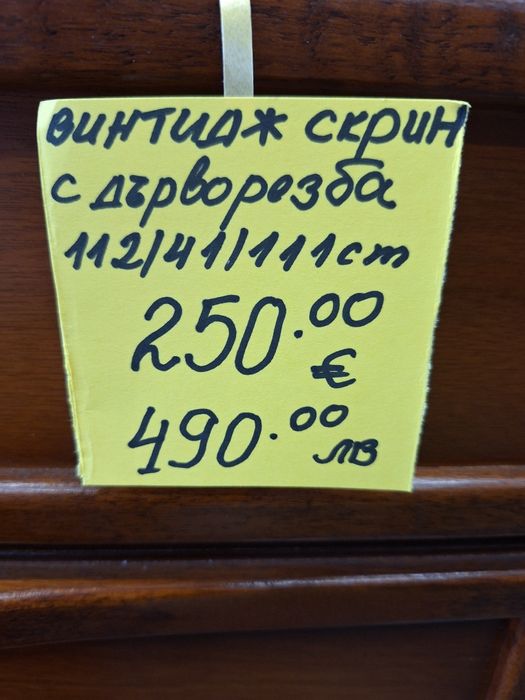 ВИНТИДЖ СКРИН
С ДЪРВОРЕЗБА
112/41/111cm
250.00
€
490.00
лв